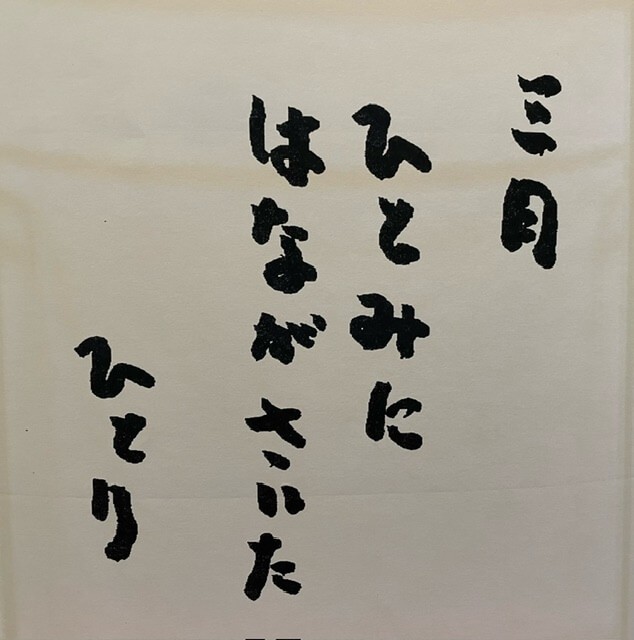 三月
ひとみに
はながさいた
ひとり